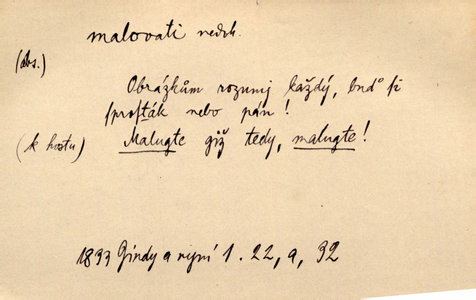 malovati nedok.
(abs.)
Obrázkům rozumj každý, buď si
sprosták nebo pán!
(k hostu) Malugte giž tedy, malugte!
1833 Gindy a nyní 1. 22, a, 92